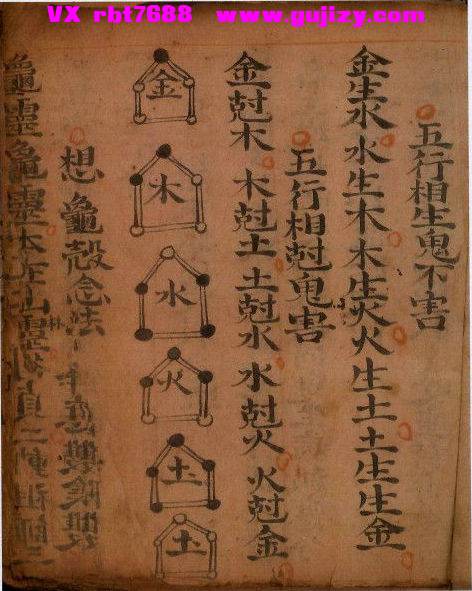 VX rbt7688 www.gujizy.com
五行相生鬼不害
金生水水生木木生火火生土土生生金
五行相尅鬼害
金尅木木尅土土尅水水尅火火尅金
金
木
水
火
土
土
想龜殼念法
龜靈龜靈本在山靈